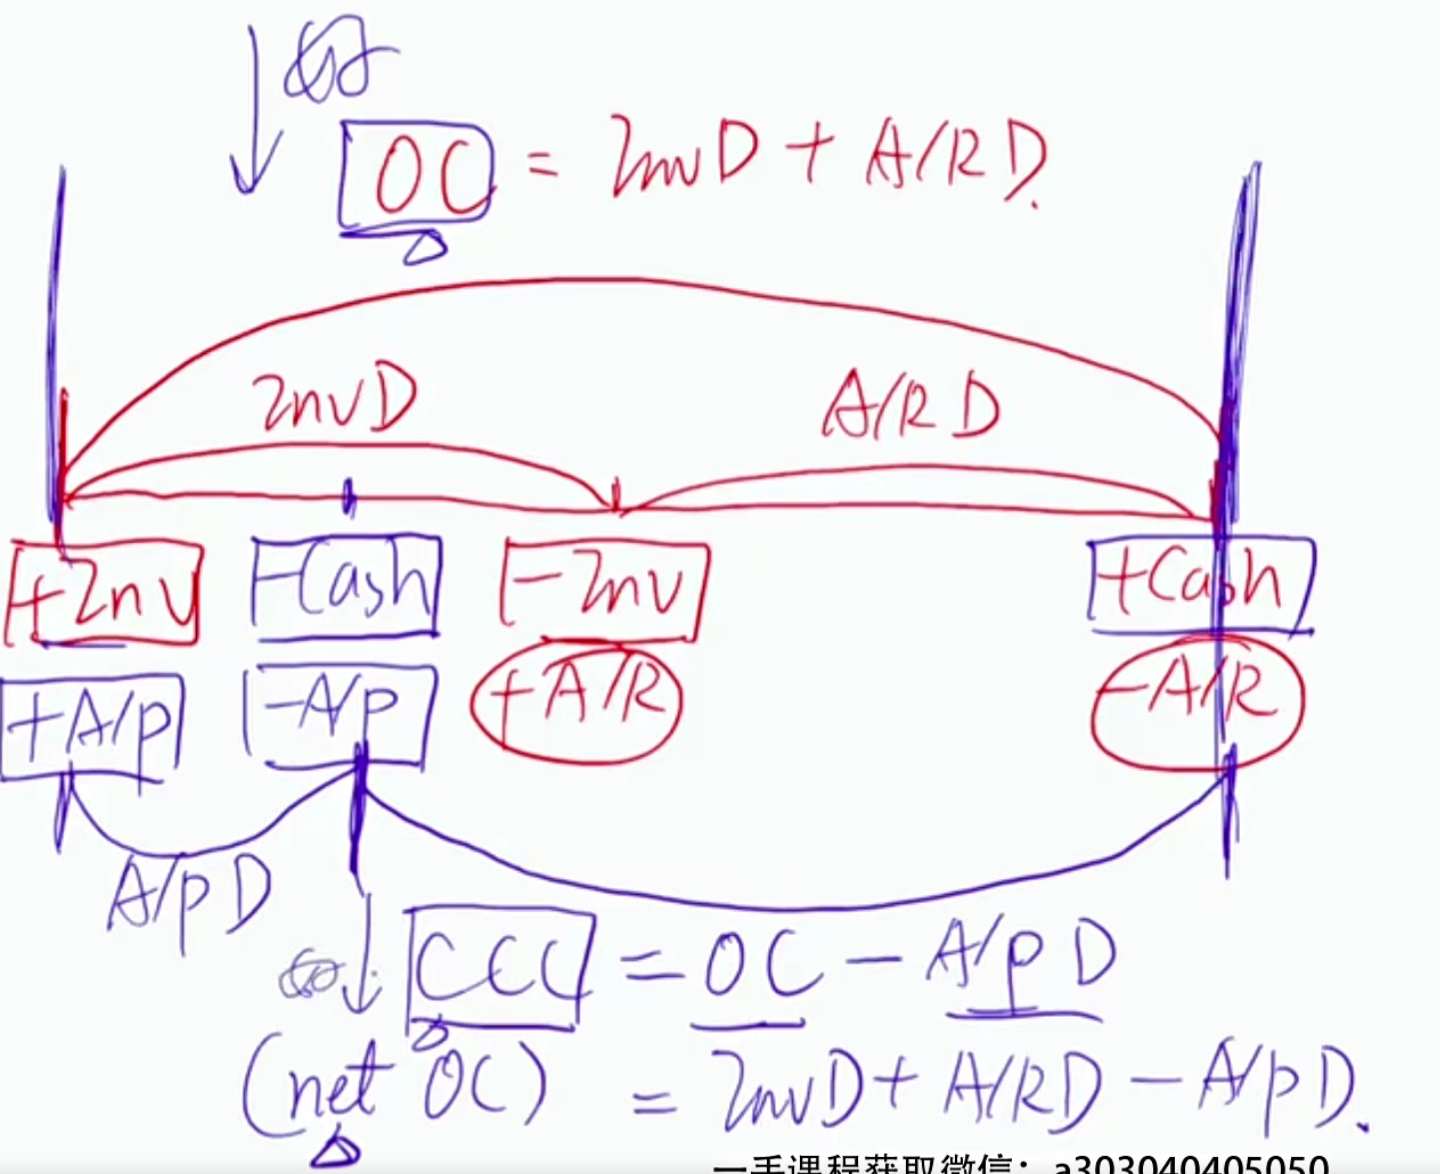 OC = InvD + A/RD.
InvD A/RD
+Inv -Cash -Inv +Cash
+A/p -A/p +A/R -A/R
A/pD
CCC = OC - A/pD
(net OC) = InvD + A/RD - A/pD.
一手课程获取微信：a303040405050